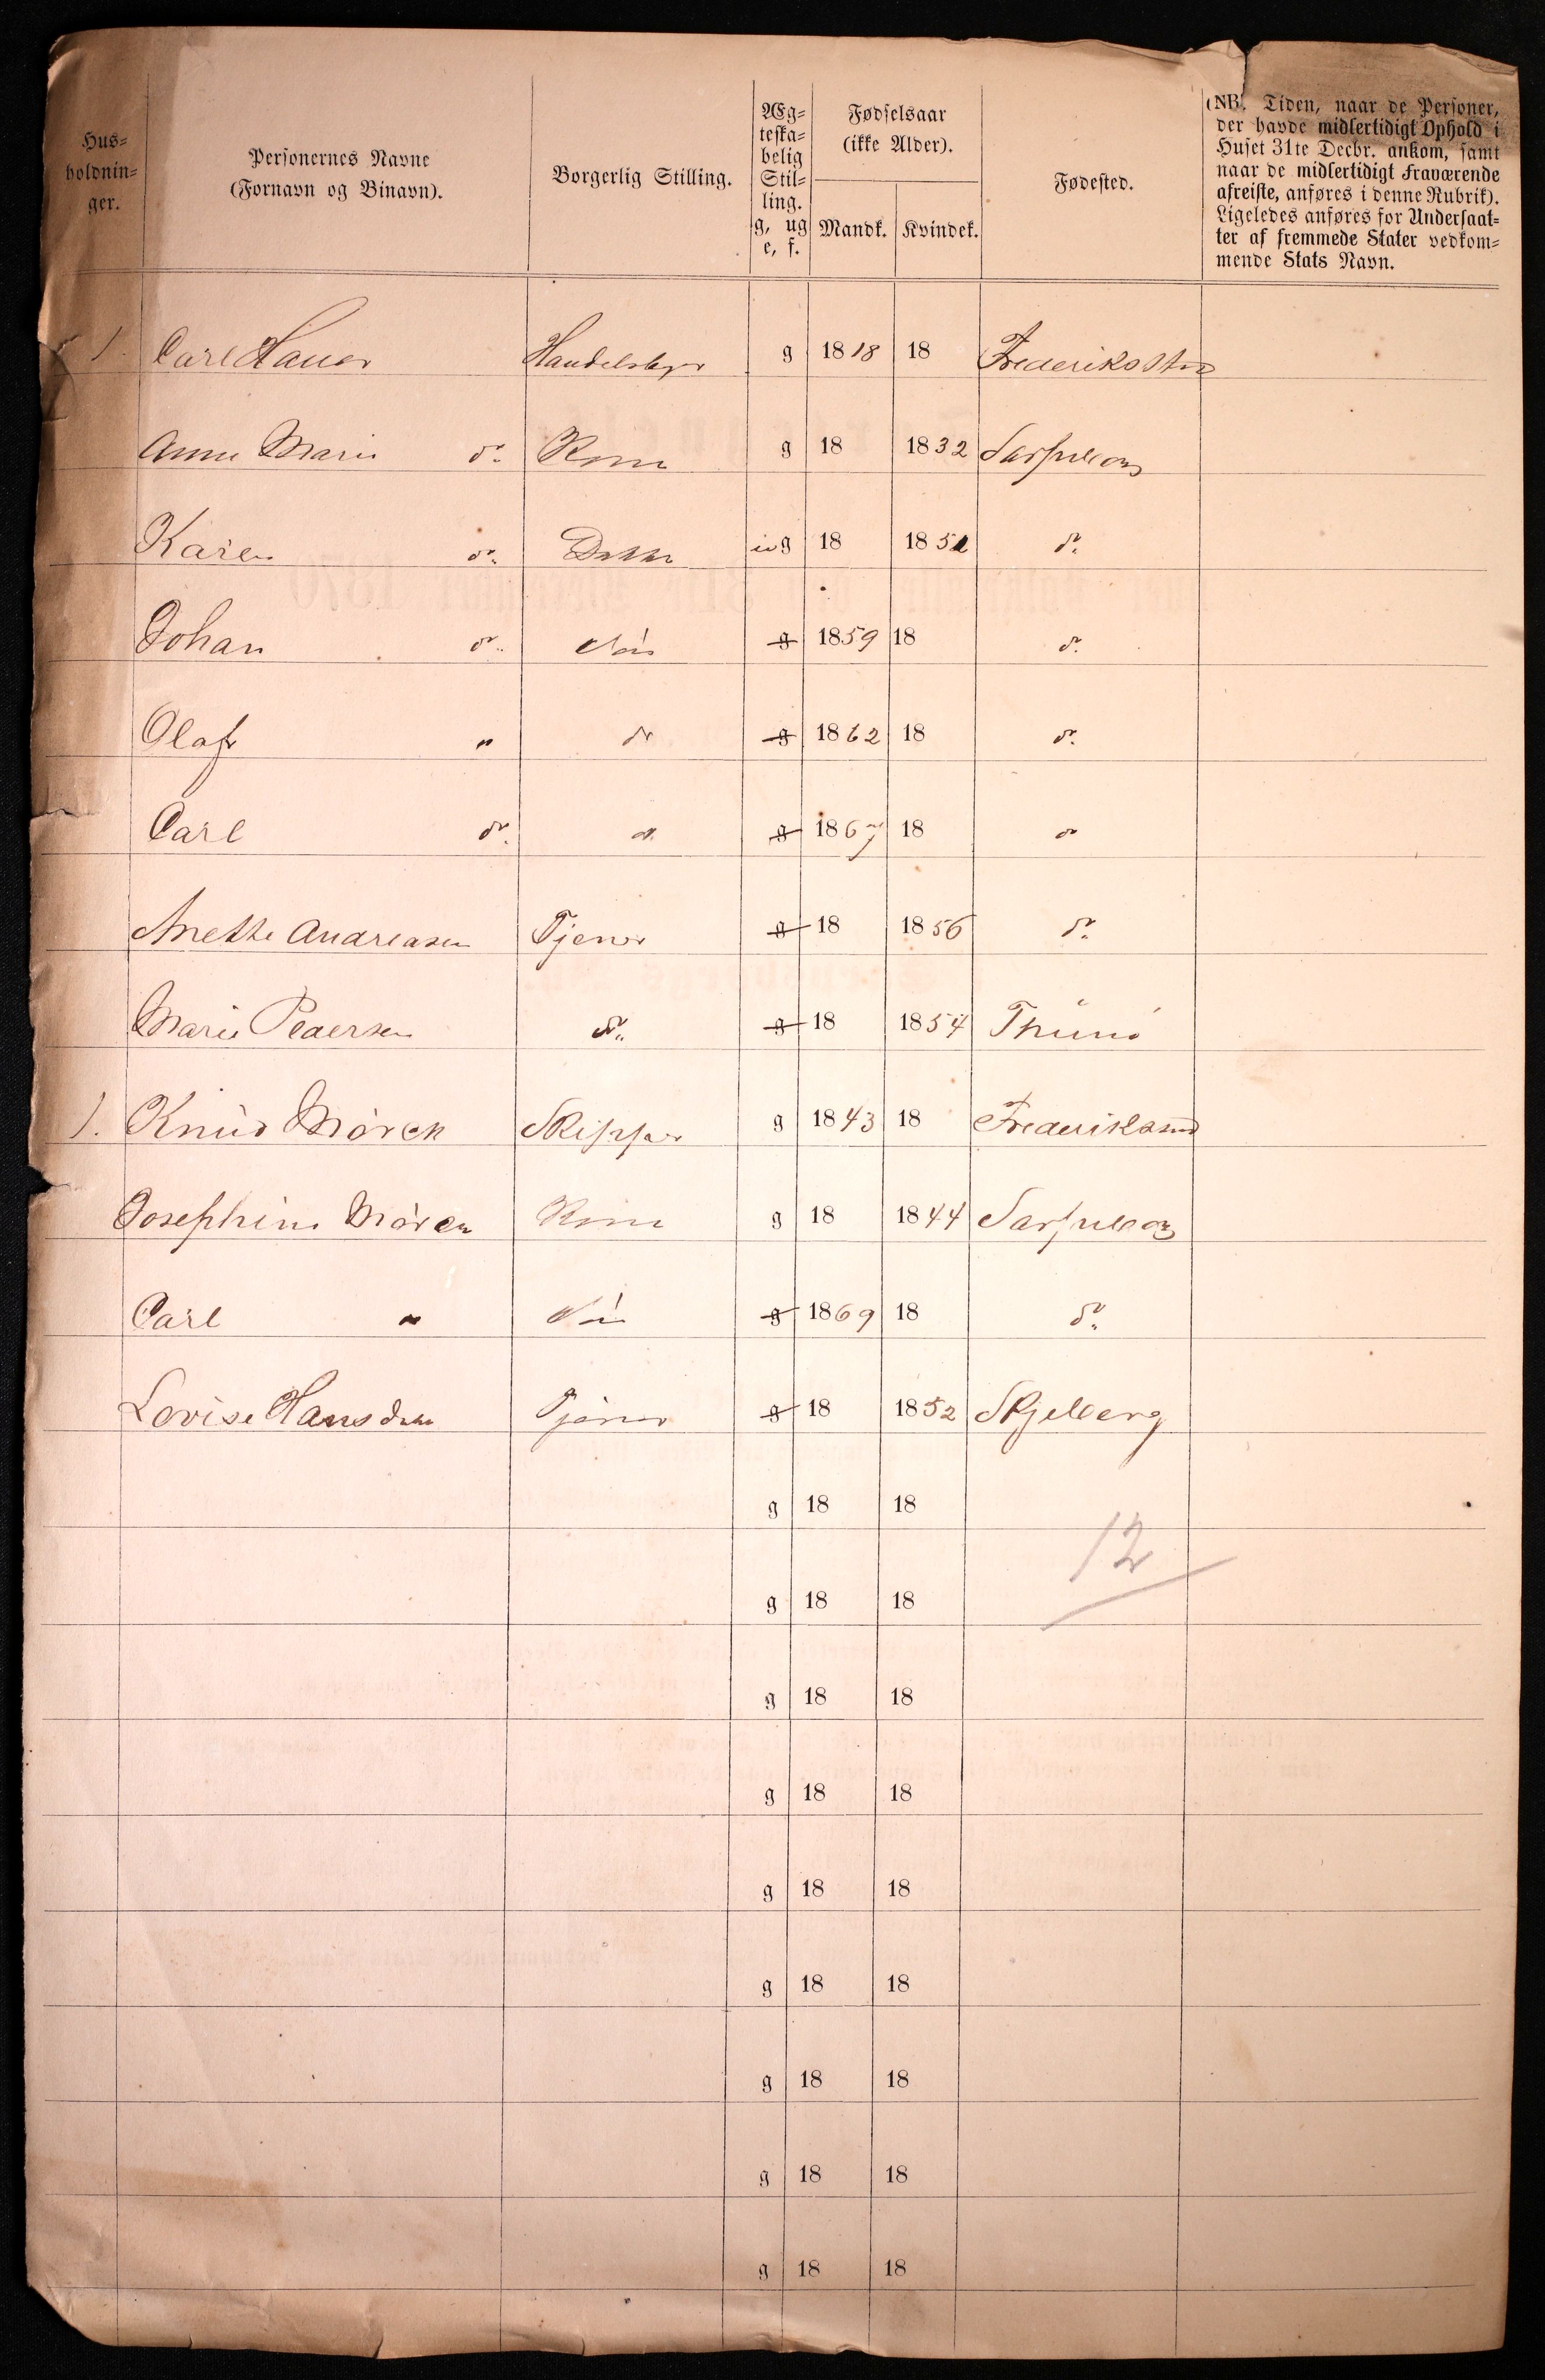 Hus=
holdnin=
ger.
Personernes Navne
(Fornavn og Binavn).
Borgerlig Stilling.
Æg=
teska=
belig
Stil=
ling.
g, ug
e, f.
Fødselsaar
(ikke Alder).
Mandk. Kvindek.
Fødested.
(NB. Tiden, naar de Personer,
der havde midlertidigt Ophold i
Huset 31te Decbr. ankom, samt
naar de midlertidigt Fraværende
afreiste, anføres i denne Rubrik).
Ligeledes anføres for Undersaat=
ter af fremmede Stater vedkom=
mende Stats Navn.
1. Carl g 1818 18 Frederikstad
Anne Marie do. Kone g 18 1832 Sarpsborg
Karen do. Datter ug 18 185 do.
Johan do. Sön g 1859 18 do.
Olaf " do g 1862 18 do.
Carl do. do. g 1867 18 do
Anette Andreasen Tjener g 18 1856 do.
Marie Pedersen do. g 18 1854 Thunö
1. Knud Mörck Skipper g 1843 18
Josephine Mörck Kone g 18 1844 Sarpsborg
Carl " Sön g 1869 18 do.
Lovise Hansdatter Tjener g 18 1852 Skjeberg
g 18 18
12
g 18 18
g 18 18
g 18 18
g 18 18
g 18 18
g 18 18
g 18 18
g 18 18